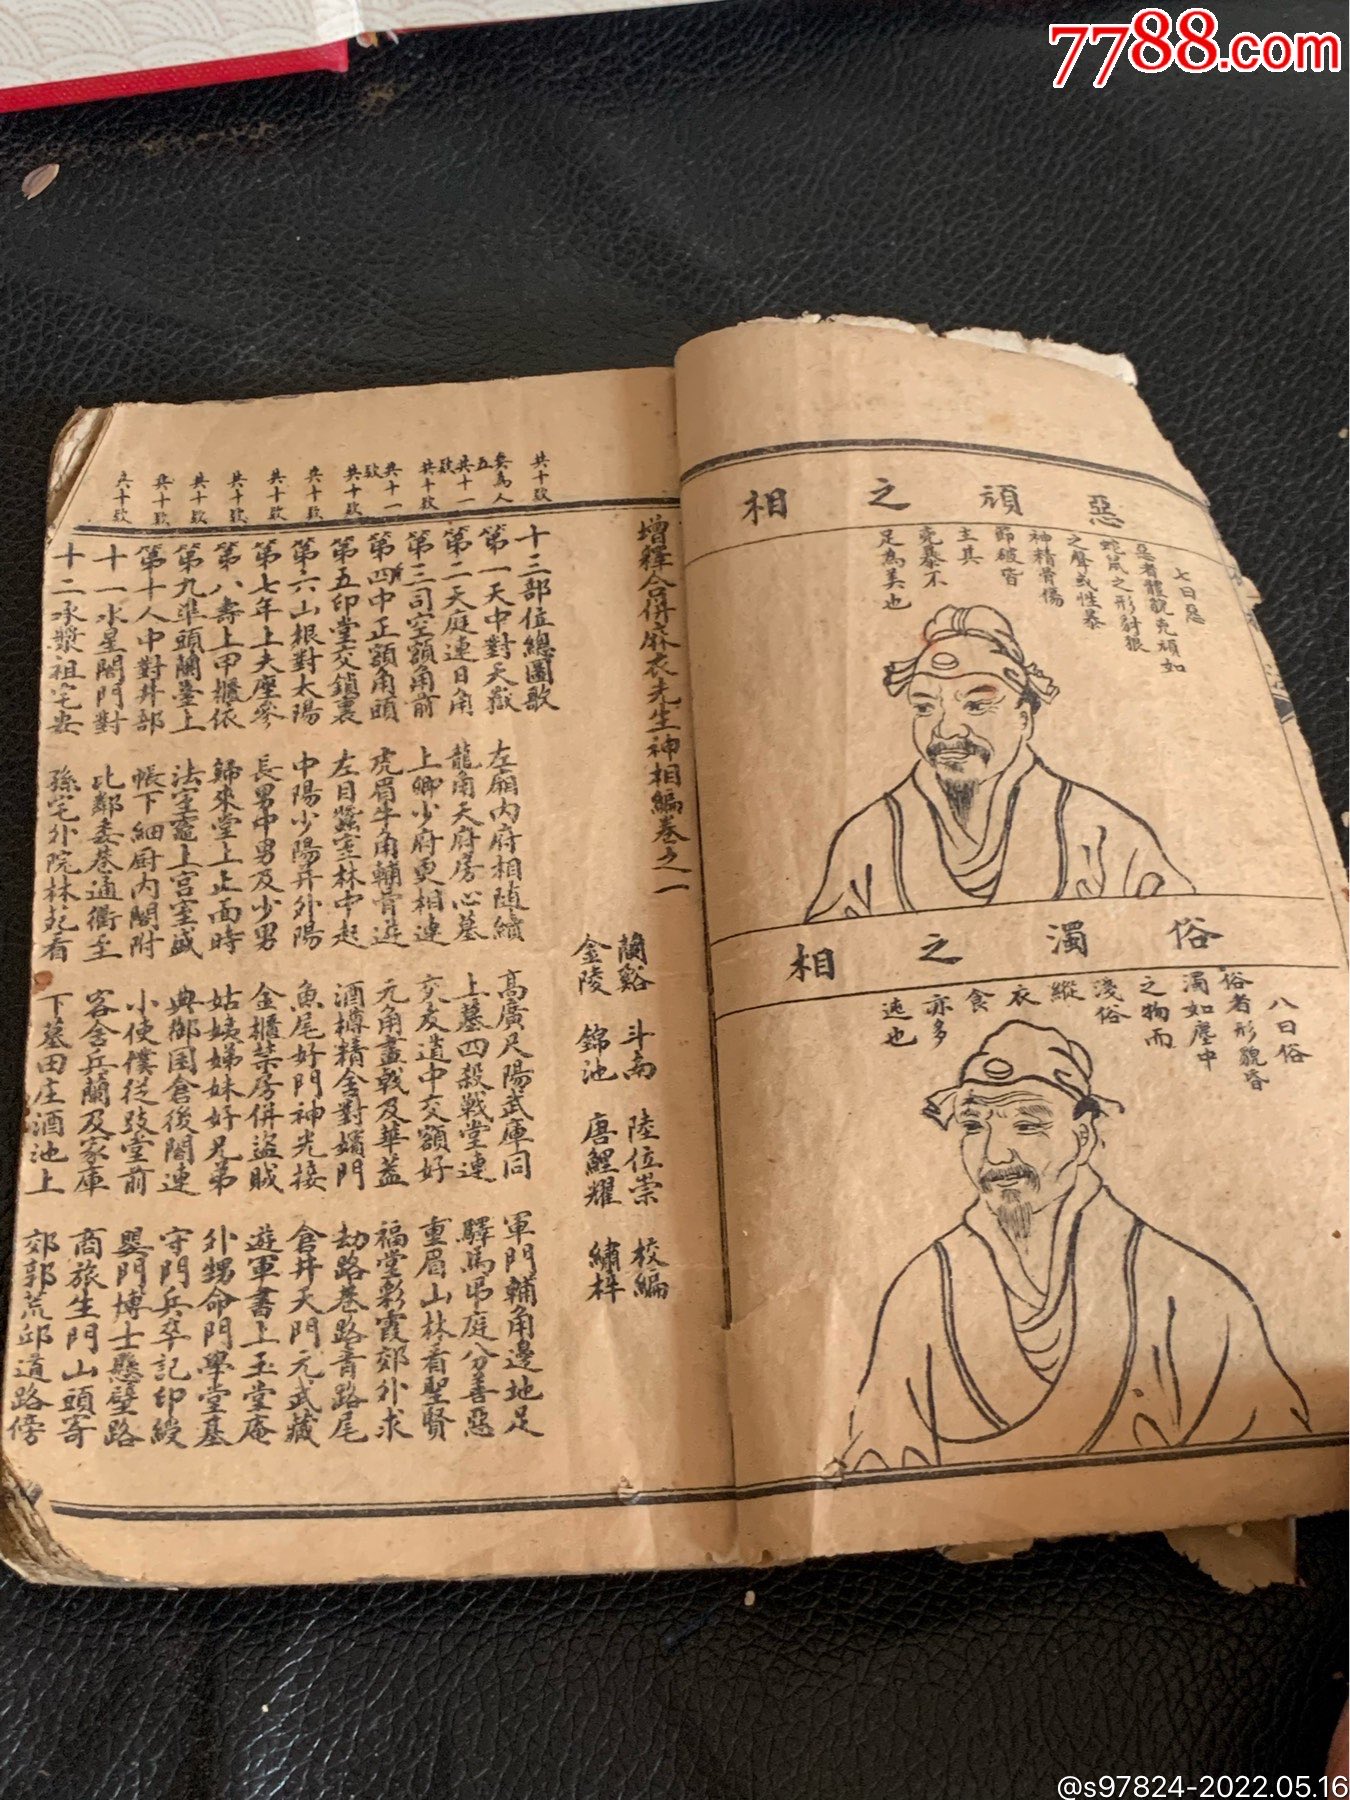 7788.com
惡頑之相
七曰惡
惡者體貌兇頑如
蛇鼠之形豺狼
之聲或性暴
神精骨傷
節破皆
主其
兇暴不
足為美也
俗濁之相
八曰俗
俗者形貌昏
濁如塵中
之物而
淺俗
縱
衣
食
亦多
迍也
增釋合併麻衣先生神相編卷之一
蘭谿 斗南 陸位崇 校編
金陵 錦池 唐鯉耀 繡梓
十三部位總圖歌
第一天中對天嶽 左廂內府相随續 高廣尺陽武庫同 軍門輔角邊地足
第二天庭連日角 龍角天府房心墓 上墓四殺戰堂連 驛馬吊庭分善惡
第三司空額角前 上卿少府更相連 交友道中交額好 重眉山林看聖賢
第四中正額角頭 虎眉牛角輔骨遊 元角畫戟及華蓋 福堂彩霞郊外求
第五印堂交鎖裏 左目蠶室林中起 酒樽精舍對嬪門 劫路巷路青路尾
第六山根對太陽 中陽少陽并外陽 魚尾奸門神光接 倉井天門元武藏
第七年上夫座參 長男中男及少男 金櫃禁房併盜賊 遊軍書上玉堂庵
第八壽上甲櫃依 歸來堂上正面時 姑姨姊妹好兄弟 外甥命門學堂基
第九準頭蘭臺上 法室竈上宮室盛 典御囷倉後閣連 守門兵卒記印綬
第十人中對井部 帳下細厨內閣附 小使僕從妓堂前 嬰門博士懸壁路
十一水星閣門對 比鄰委巷通衢至 客舍兵蘭及家庫 商旅生門山頭寄
十二承漿祖宅安 孫宅外院林苑看 下墓田庄酒池上 郊郭荒邱道路傍
共十欵
矣為人
五
共十一
欵
共十欵
共十一
欵
共十欵
共十欵
共十欵
共十欵
共十欵
共十欵
共十欵
@s97824-2022.05.16